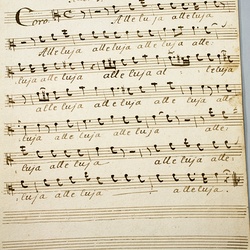 Coro. Alleluja alleluja
Alleluja alleluja alleluja alle:
luja alleluja alleluja al leluja
alleluja alleluja alleluja alle
luja alleluja alle:
luja alleluja alleluja
alleluja alleluja alleluja.